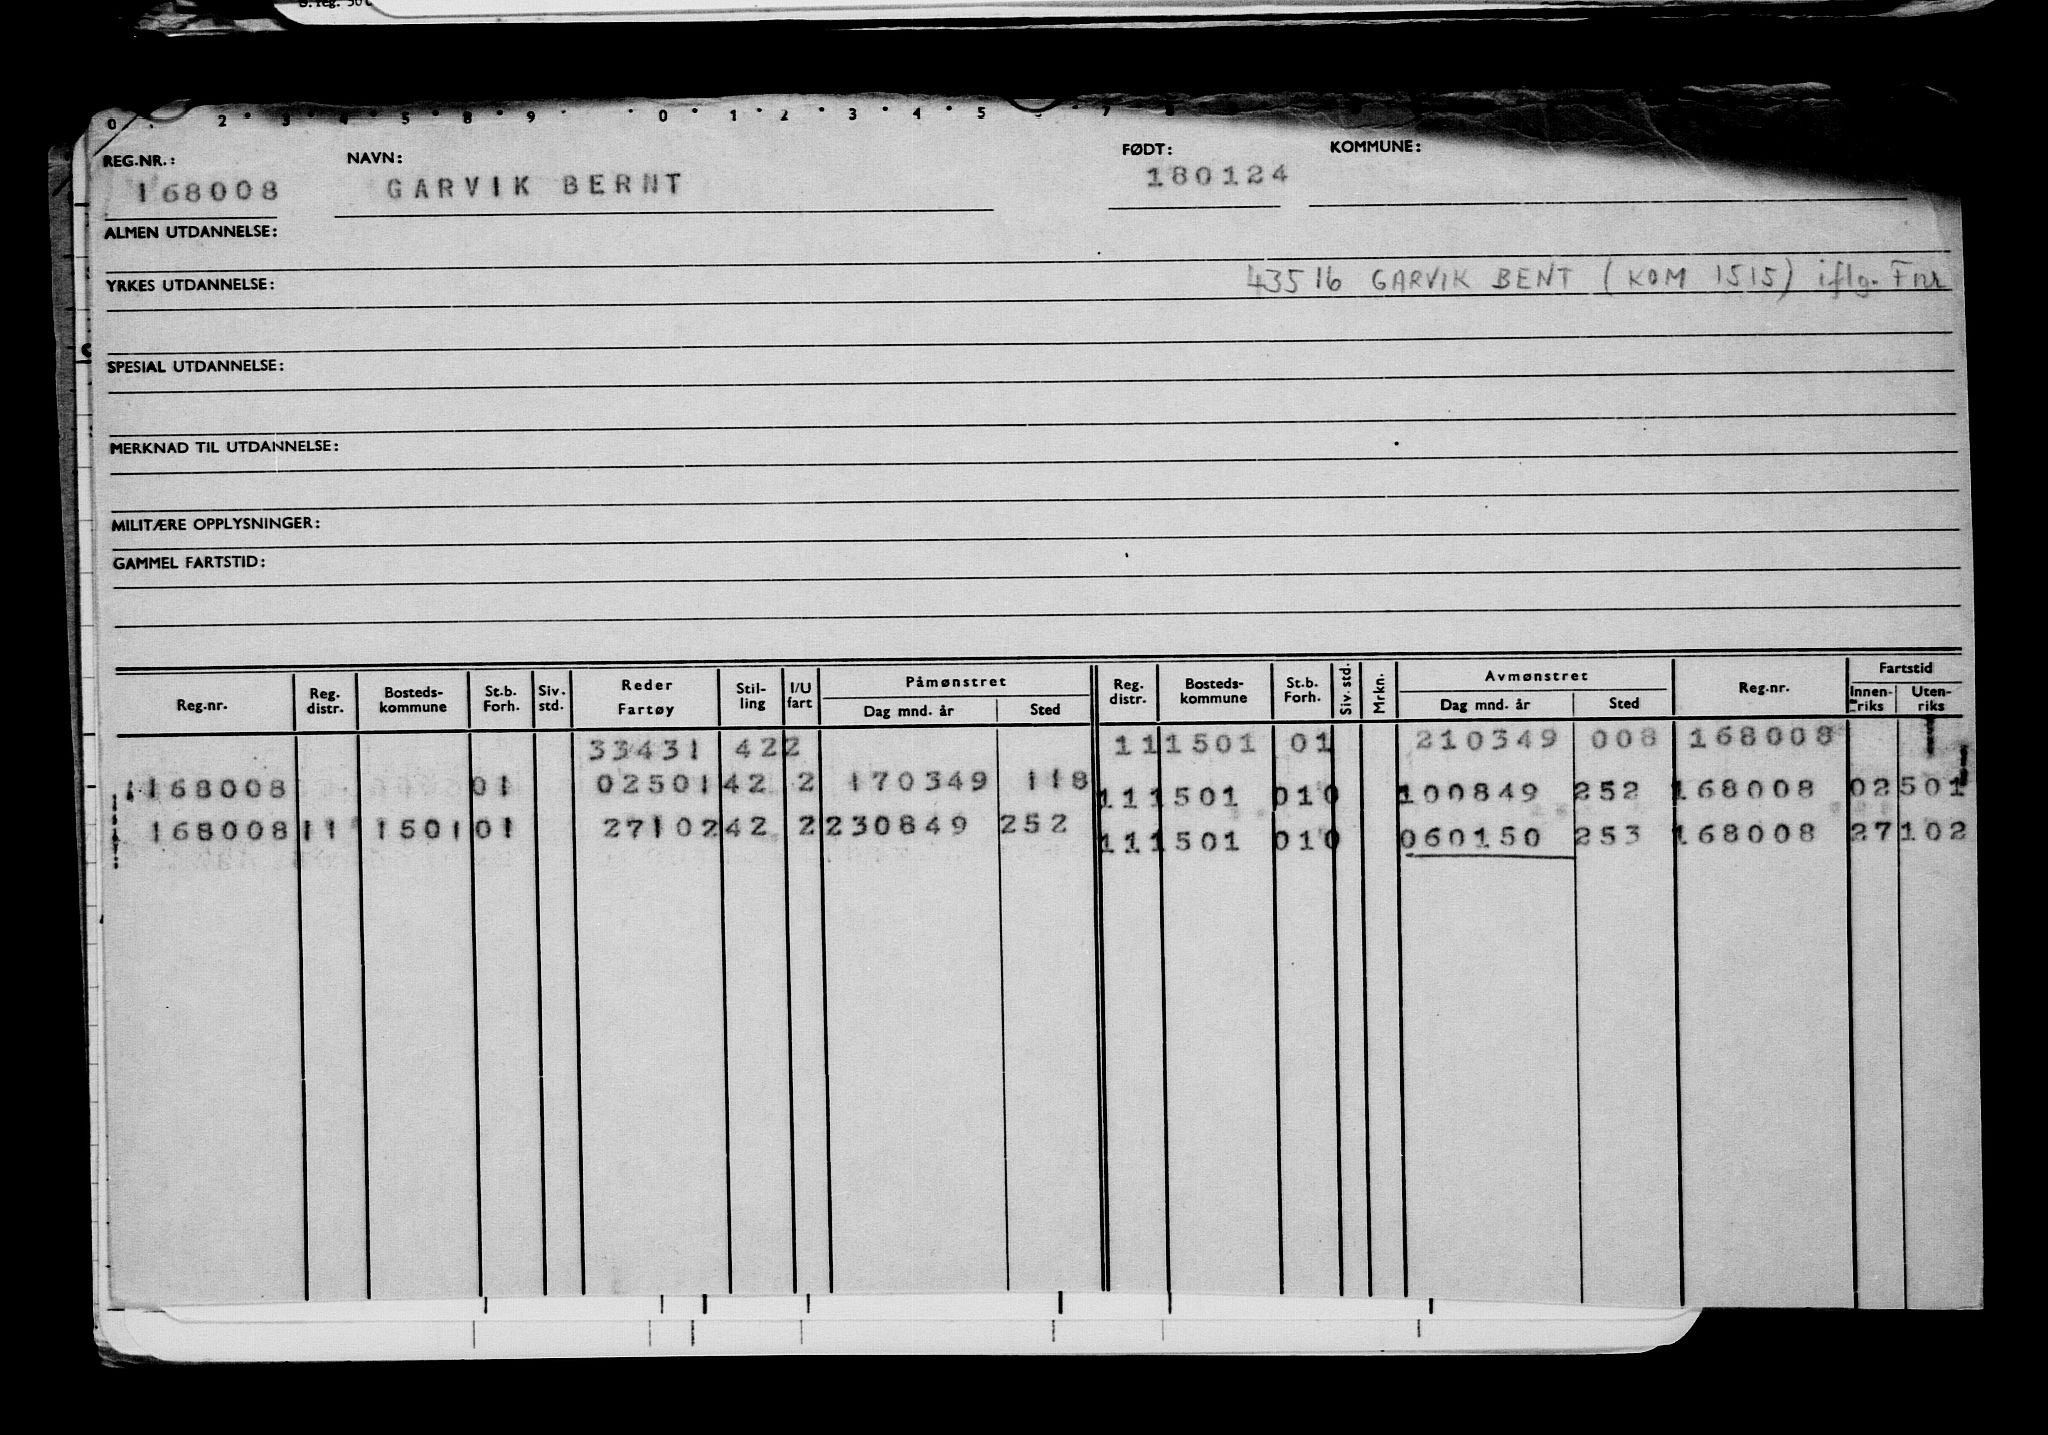 0 2 3 4 5 8 9 0 1 2 3 4 5 7 8
REG.NR.: NAVN: FØDT: KOMMUNE:
168008 GARVIK BERNT 180124
ALMEN UTDANNELSE:
43516 GARVIK BENT (KOM 1515) iflg. Fnr
YRKES UTDANNELSE:
SPESIAL UTDANNELSE:
MERKNAD TIL UTDANNELSE:
MILITÆRE OPPLYSNINGER:
GAMMEL FARTSTID:
Reg.nr. Reg. distr. Bosteds-kommune St.b. Forh. Siv. std. Reder Fartøy Stil-ling I/U fart Påmønstret Dag mnd. år Sted Reg. distr. Bosteds-kommune St.b. Forh. Siv. std. Mrkn. Avmønstret Dag mnd. år Sted Reg.nr. Fartstid Innen-riks Uten-riks
33431 422 111501 01 210349 008 168008
1168008 01 02501 42 2 170349 118 111501 010 100849 252 168008 02501
168008 11 1501 01 27102 42 2 230849 252 111501 010 060150 253 168008 27102